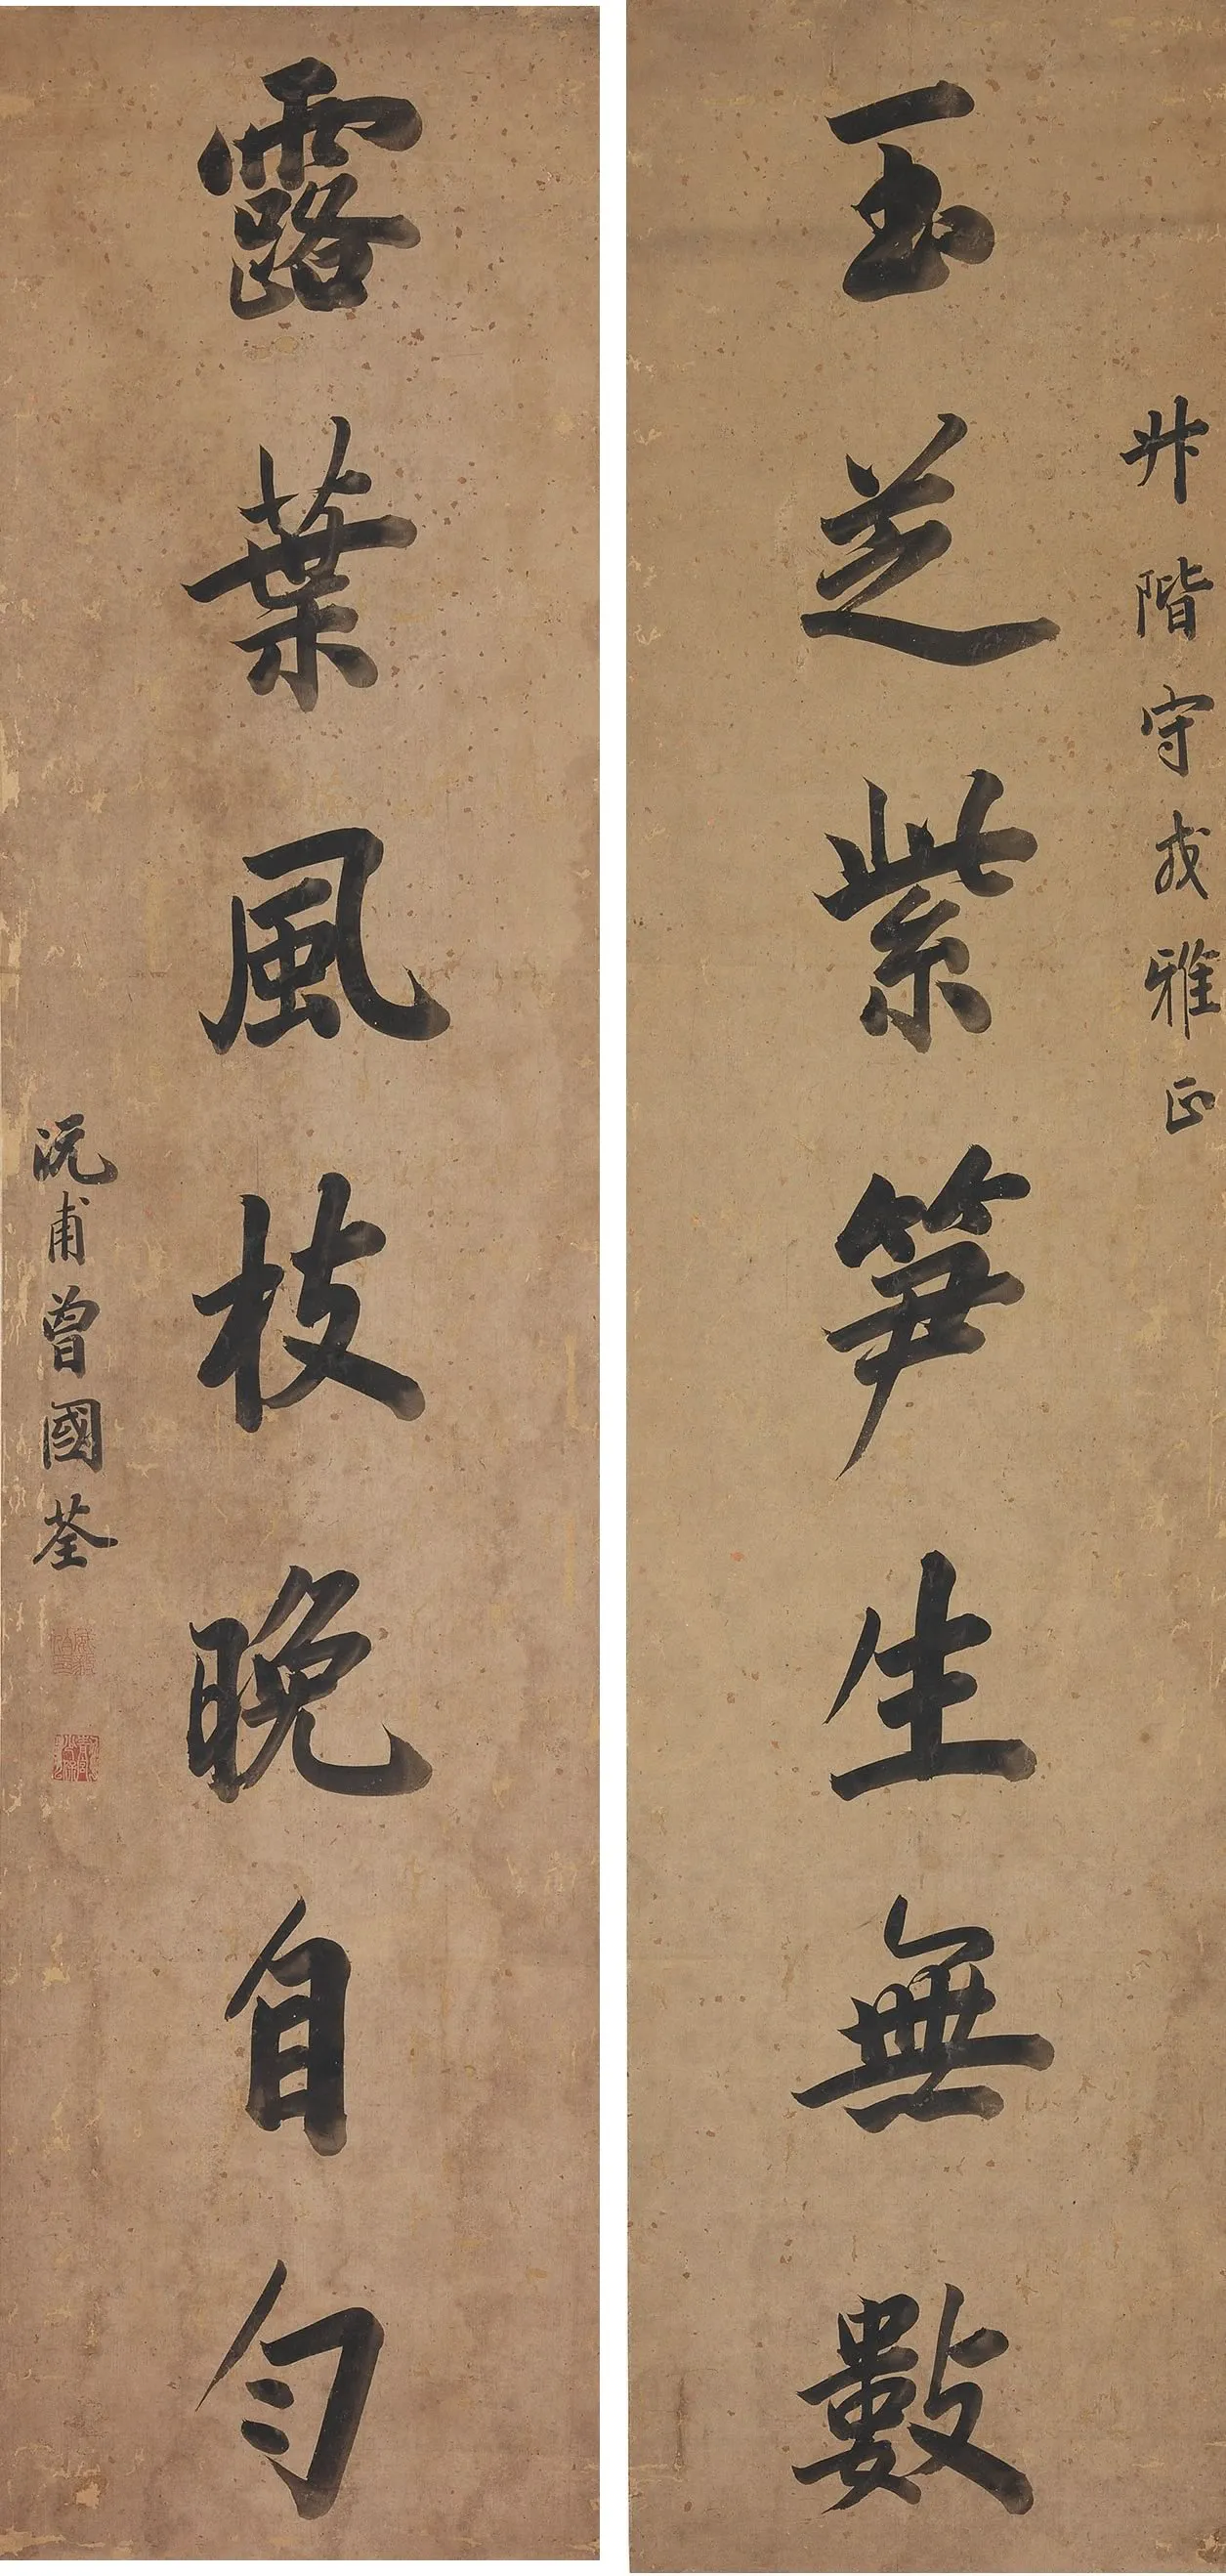 升階守戎雅正
玉芝紫笋生無數
露葉風枝晚自勻
沅甫曾國荃